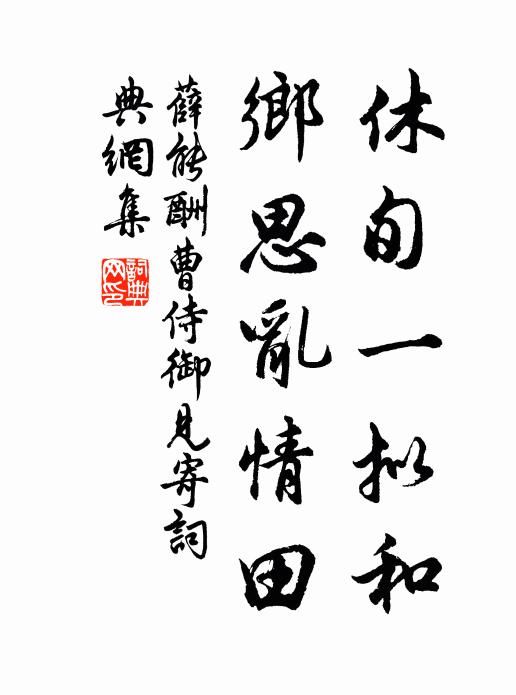 休旬一拟和
鄉思亂情田
薛能酬曹侍御見寄詞
典網集
詞典網印